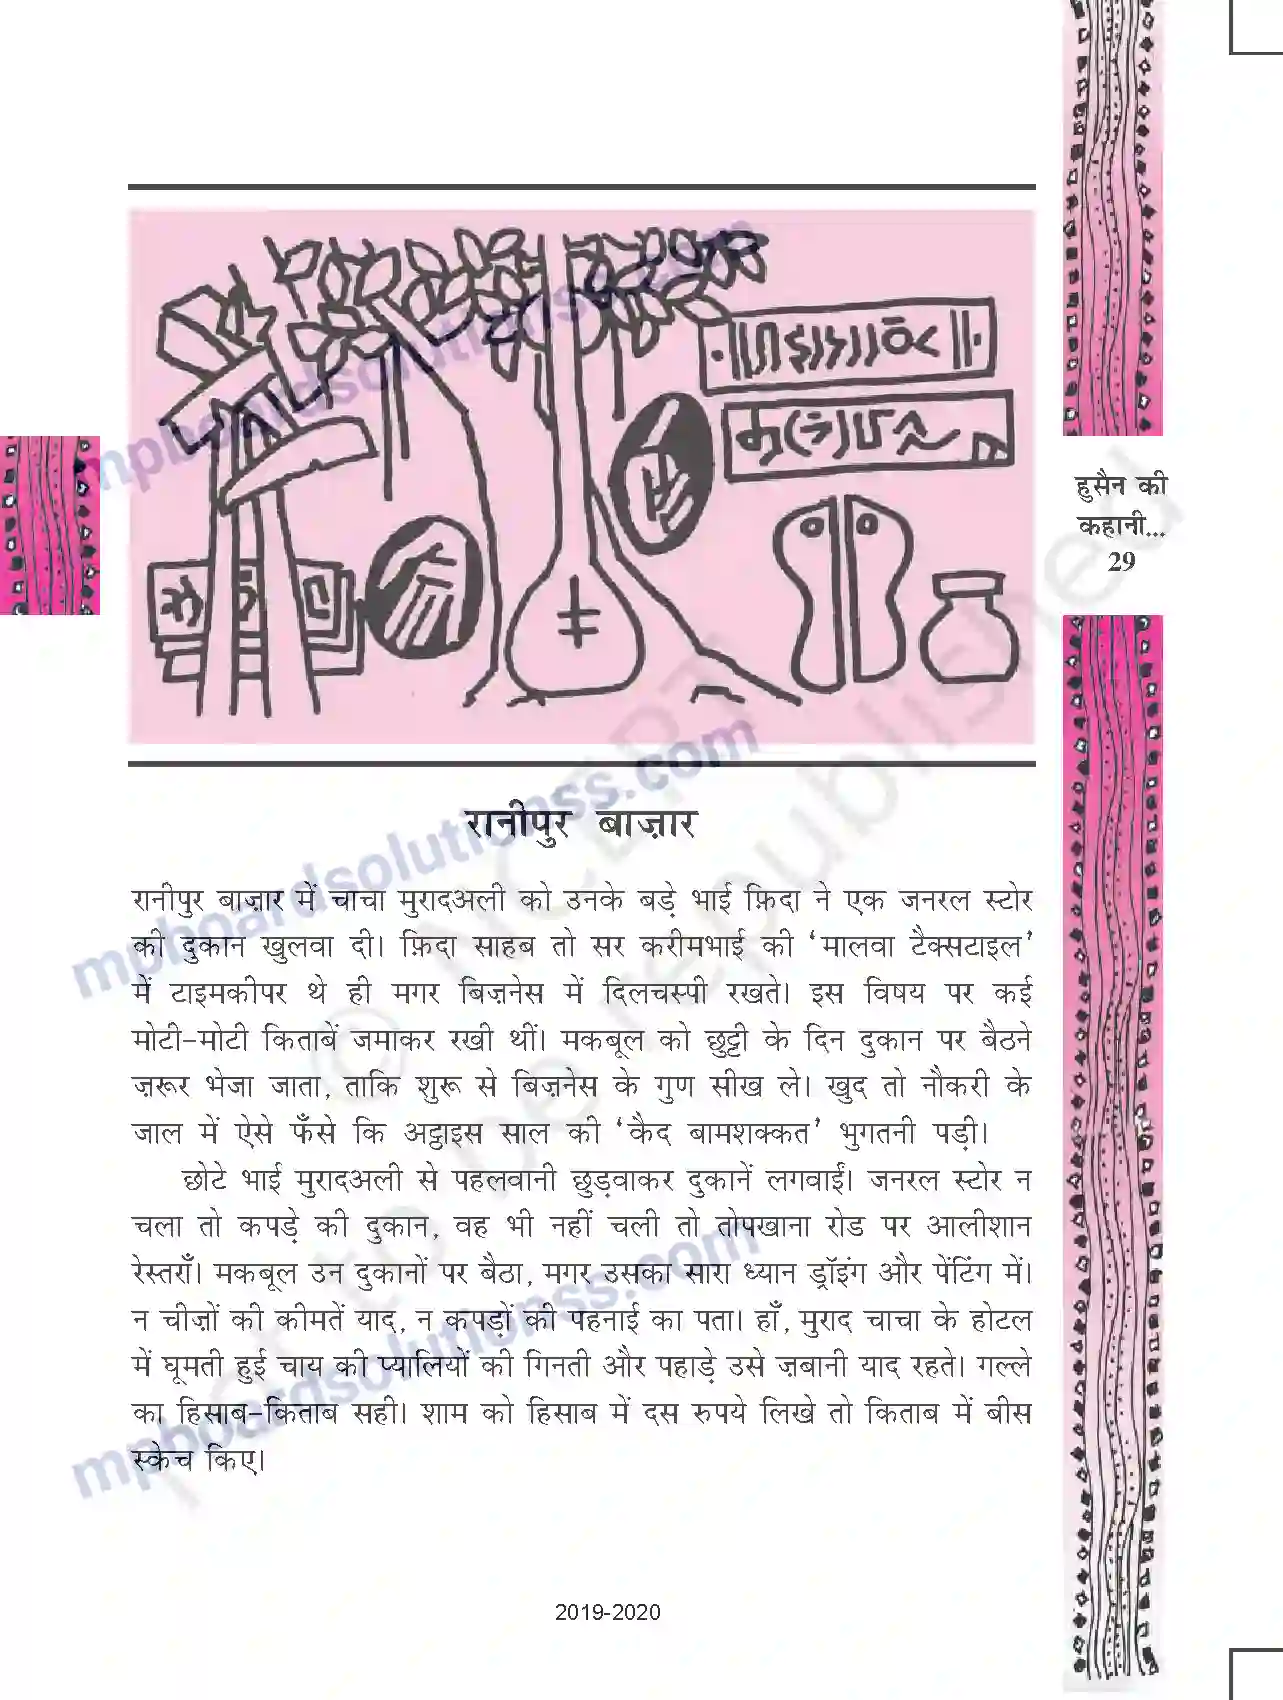 हुसैन की
कहानी...
29
रानीपुर बाज़ार
रानीपुर बाज़ार में चाचा मुरादअली को उनके बड़े भाई फ़िदा ने एक जनरल स्टोर
की दुकान खुलवा दी। फ़िदा साहब तो सर करीमभाई की ‘मालवा टैक्सटाइल’
में टाइमकीपर थे ही मगर बिज़नेस में दिलचस्पी रखते। इस विषय पर कई
मोटी-मोटी किताबें जमाकर रखी थीं। मकबूल को छुट्टी के दिन दुकान पर बैठने
ज़रूर भेजा जाता, ताकि शुरू से बिज़नेस के गुण सीख ले। खुद तो नौकरी के
जाल में ऐसे फँसे कि अट्ठाइस साल की ‘कैद बामशक्कत’ भुगतनी पड़ी।
छोटे भाई मुरादअली से पहलवानी छुड़वाकर दुकानें लगवाईं। जनरल स्टोर न
चला तो कपड़े की दुकान, वह भी नहीं चली तो तोपखाना रोड पर आलीशान
रेस्तराँ। मकबूल उन दुकानों पर बैठा, मगर उसका सारा ध्यान ड्रॉइंग और पेंटिंग में।
न चीज़ों की कीमतें याद, न कपड़ों की पहनाई का पता। हाँ, मुराद चाचा के होटल
में घूमती हुई चाय की प्यालियों की गिनती और पहाड़े उसे ज़बानी याद रहते। गल्ले
का हिसाब-किताब सही। शाम को हिसाब में दस रुपये लिखे तो किताब में बीस
स्केच किए।
2019-2020
mpboardsolutionss.com
mpboardsolutionss.com
mpboardsolutionss.com
© NCERT
not to be republished